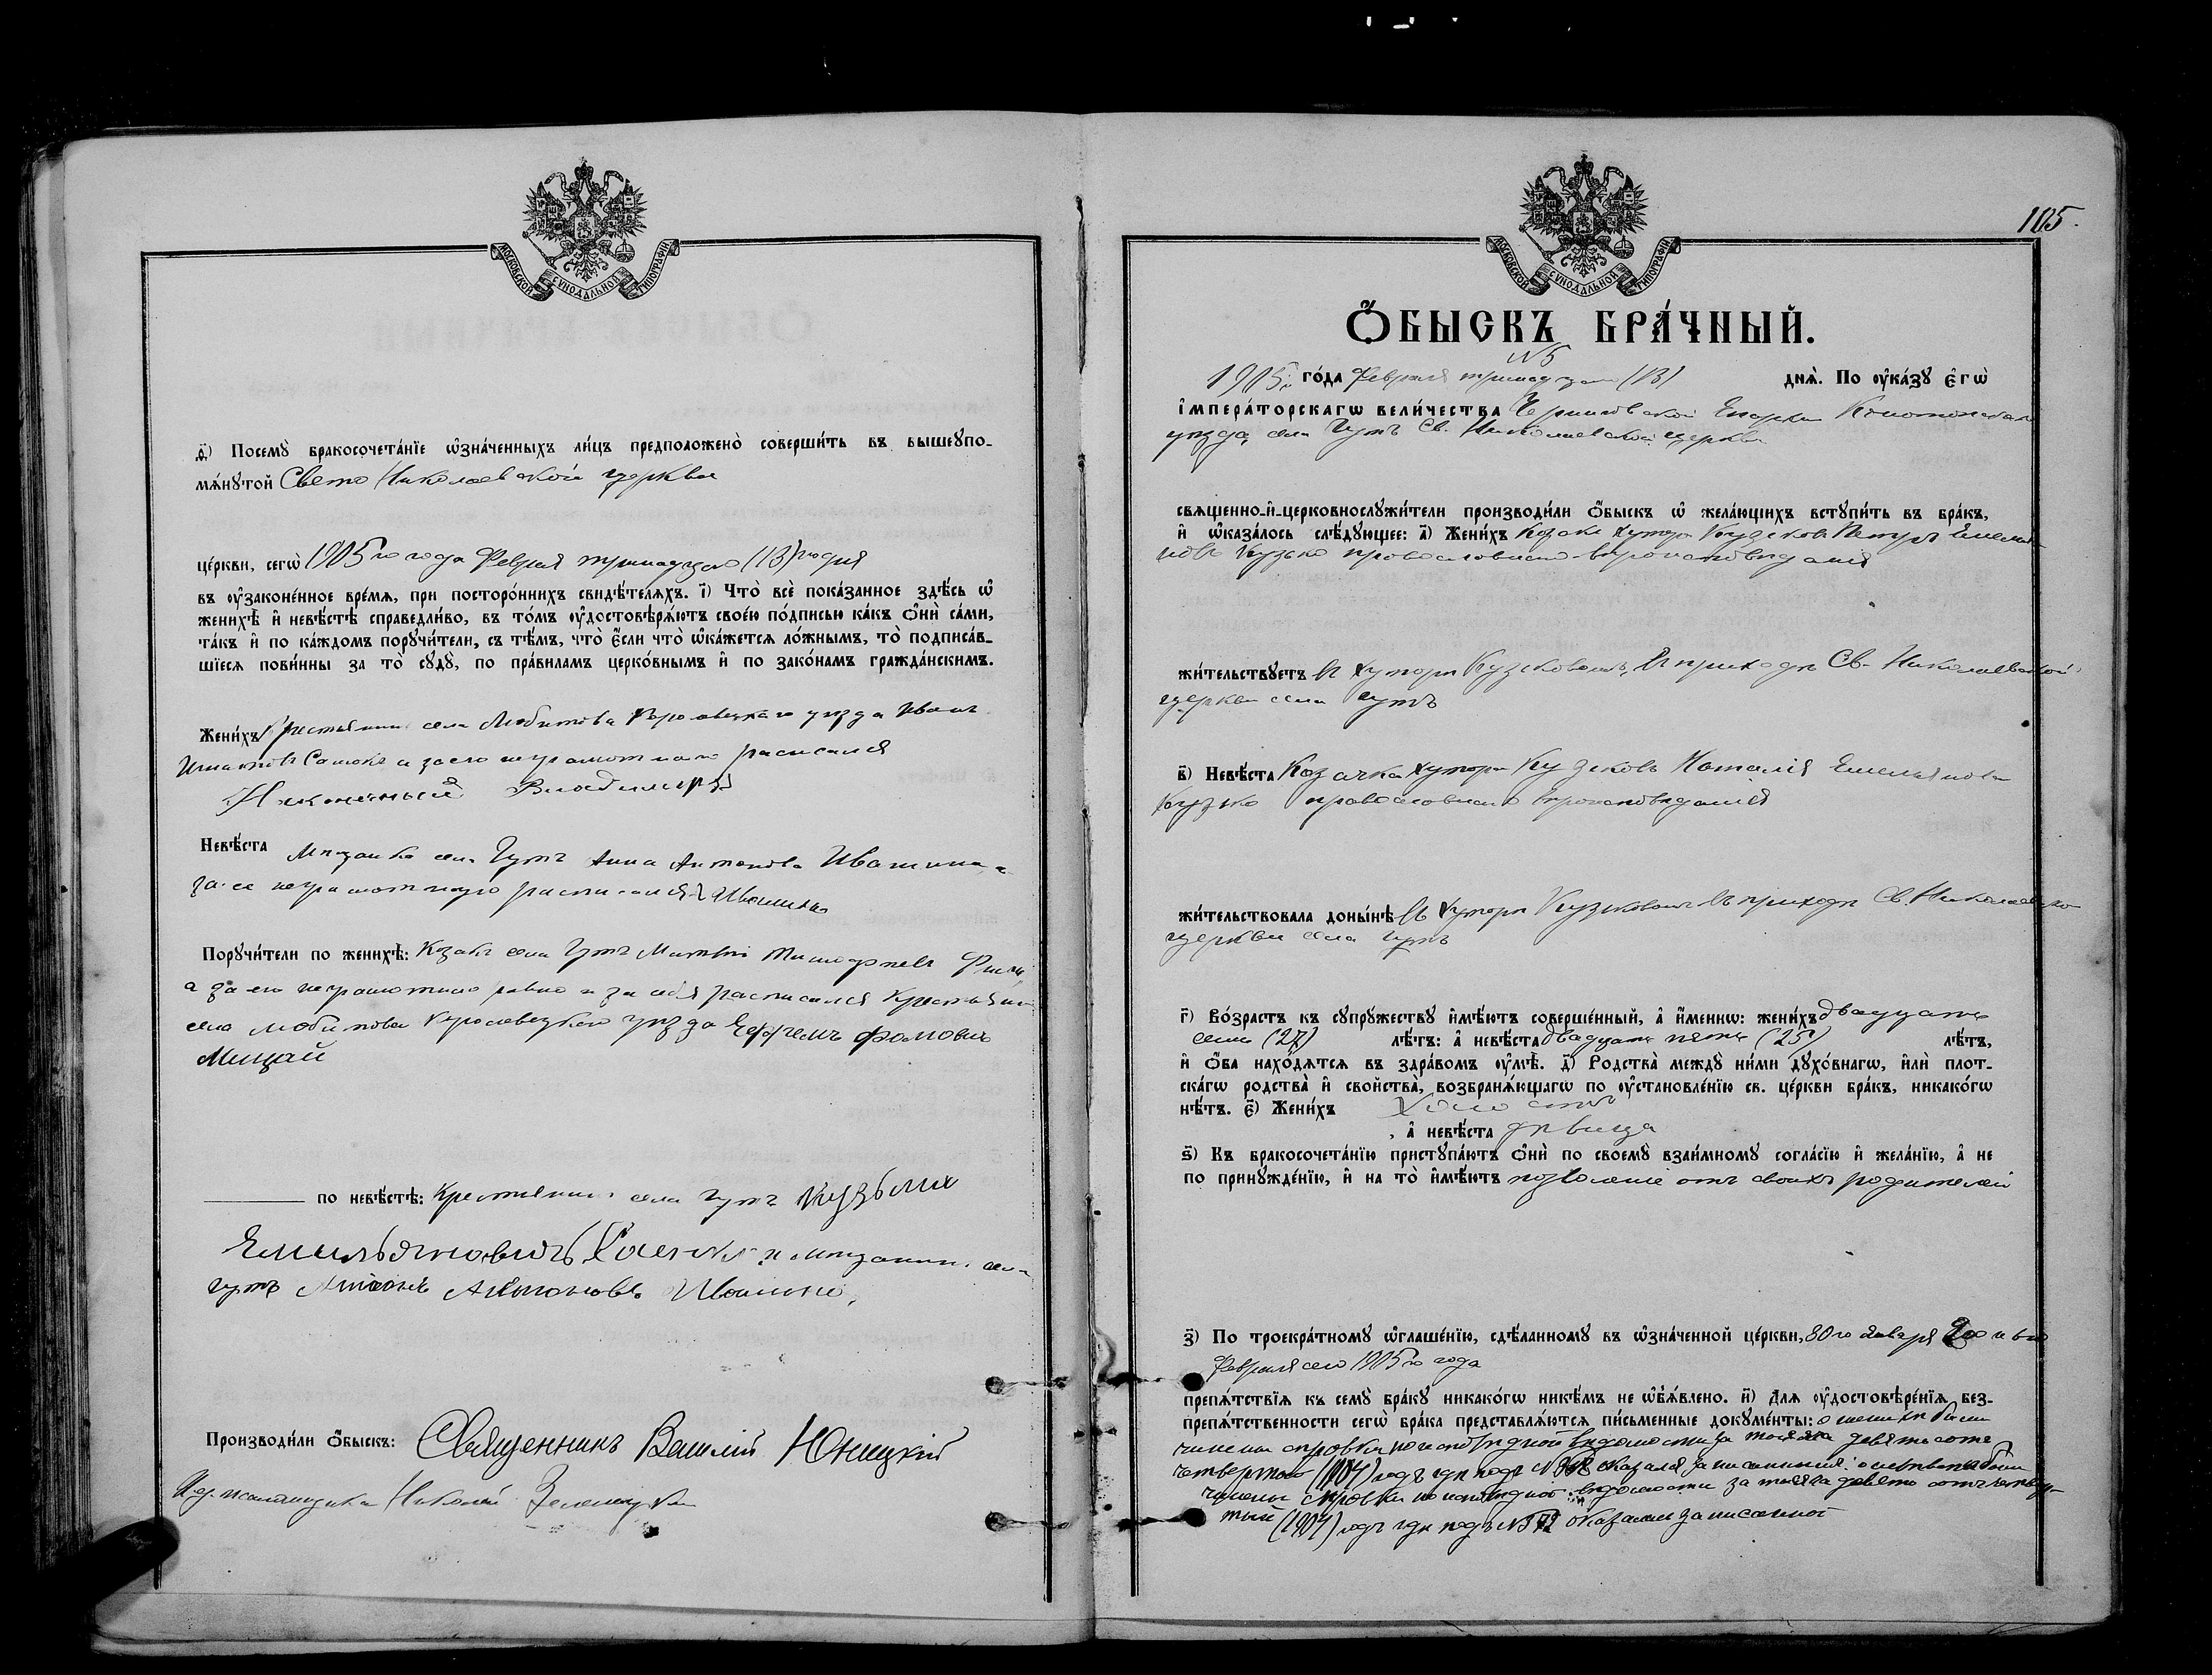 МОСКОВСКОЙ СѴНОДАЛЬНОЙ ТИПОГРАФІИ
ѳ҃) Посемꙋ̀ бракосочета́нїе ѡ҆зна́ченныхъ ли́цъ предположено̀ соверши́ть въ вышеꙋпо-
мѧ́нꙋтой Свято Николаевской церкви
це́ркви, сегѡ̀ 1905 го года Февраля тринадцато (13) го дня
въ ᲂу҆законе́нное вре́мѧ, при посторо́ннихъ свидѣ́телѧхъ. і҃) Что̀ всѐ пока́занное здѣ́сь ѡ҆
женихѣ̀ и҆ невѣ́стѣ справедли́во, въ то́мъ ᲂу҆достовѣрѧ́ютъ свое́ю по́дписью ка́къ ѻ҆нѝ са́ми,
та́къ и҆ по ка́ждомъ порꙋчи́тели, съ тѣ́мъ, что̀ є҆́сли что̀ ѡ҆ка́жетсѧ ло́жнымъ, то̀ подписа́в-
шїесѧ пови́нны за то̀ сꙋдꙋ̀, по пра́виламъ церко́внымъ и҆ по зако́намъ гражда́нскимъ.
Жени́хъ Крестьянинъ села Любитова Кролевецкаго уѣзда Иванъ
а за его неграмотнаго расписался
Владимиръ
Невѣ́ста Мѣщанка села Гутъ Анна Антонова Ивашина, а
за ее неграмотную расписался Ивашина
Порꙋчи́тели по женихѣ̀: Козакъ села Гутъ
а за его неграмотнаго равно и за себя расписался Крестьянин
села Любитова Кролевецкаго уѣзда Ефремъ Фомовичъ
Мицай
по невѣ́стѣ: Крестьянинъ села Гутъ Кузьма
Емильяновичъ и мѣщанинъ села
Гутъ Антоновъ Ивашина,
Производи́ли ѻ҆́быскъ: Священникъ Василій Юницкій
псаломщика Николай
105.
МОСКОВСКОЙ СѴНОДАЛЬНОЙ ТИПОГРАФІИ
Ѻ҆́БЫСКЪ БРА́ЧНЫЙ.
N 5
1905 го́да Февраля тринадцато (13) днѧ̀. По ᲂу҆ка́зꙋ є҆гѡ̀
і҆мпера́торскагѡ вели́чества Черниговской Епархіи Конотопскаго
уѣзда, села Гутъ Св. Николаевской церкви
свѧщенно-и҆-церковнослꙋжи́тели производи́ли ѻ҆́быскъ ѡ҆ жела́ющихъ встꙋпи́ть въ бра́къ,
и҆ ѡ҆каза́лось слѣ́дꙋющее: а҃) Жени́хъ Козакъ хутора Кузьковъ Петръ Емелья-
новъ Кузько православнаго вѣроисповѣданія
жи́тельствꙋетъ въ хуторѣ Кузьковомъ, въ приходѣ Св. Николаевской
церкви села Гутъ
в҃) Невѣ́ста Козачка хутора Кузьковъ Наталія Емельянова
Кузько православнаго вѣроисповѣданія
жи́тельствовала доны́нѣ въ хуторѣ Кузьковомъ въ приходѣ Св. Николаевской
церкви села Гутъ
г҃) Во́зрастъ къ сꙋпрꙋ́жествꙋ и҆мѣ́ютъ соверше́нный, а҆ и҆́менно: жени́хъ двадцать
семь (27) лѣ́тъ: а҆ невѣ́ста двадцать пять (25) лѣ́тъ,
и҆ ѻ҆́ба нахо́дѧтсѧ въ здра́вомъ ᲂу҆мѣ̀. д҃) Родства̀ междꙋ̀ ни́ми дꙋхо́внагѡ, и҆лѝ плот-
ска́гѡ родства̀ и҆ сво́йства, возбранѧ́ющагѡ по ᲂу҆становле́нїю св. це́ркви бра́къ, никако́гѡ
нѣ́тъ. є҃) Жени́хъ Холостъ
, а҆ невѣ́ста дѣвица
ѕ҃) Къ бракосочета́нїю пристꙋпа́ютъ ѻ҆нѝ по своемꙋ̀ взаи́мномꙋ согла́сїю и҆ жела́нїю, а҆ не
по принꙋжде́нїю, и҆ на то̀ и҆мѣ́ютъ позволеніе отъ своихъ родителей
з҃) По троекра́тномꙋ ѡ҆глаше́нїю, сдѣ́ланномꙋ въ ѡ҆зна́ченной це́ркви, 30 го января 2 го и 6 го
Февраля сего 1905 го года
препѧ́тствїѧ къ семꙋ̀ бра́кꙋ никако́гѡ никѣ́мъ не ѡ҆б̾ѧ́влено. и҃) Длѧ ᲂу҆достовѣре́нїѧ без-
препѧ́тственности сегѡ̀ бра́ка представлѧ́ютсѧ пи́сьменные докꙋме́нты: о женихѣ были
чинены справки по исповѣдной вѣдомости за тысяча девятьсотъ
четвертый (1904) годъ гдѣ подъ N оказался записаннымъ: о невѣстѣ были
чинены справки по исповѣдной вѣдомости за тысяча девятьсотъ четвер-
тый (1904) годъ гдѣ подъ N оказалась записанной